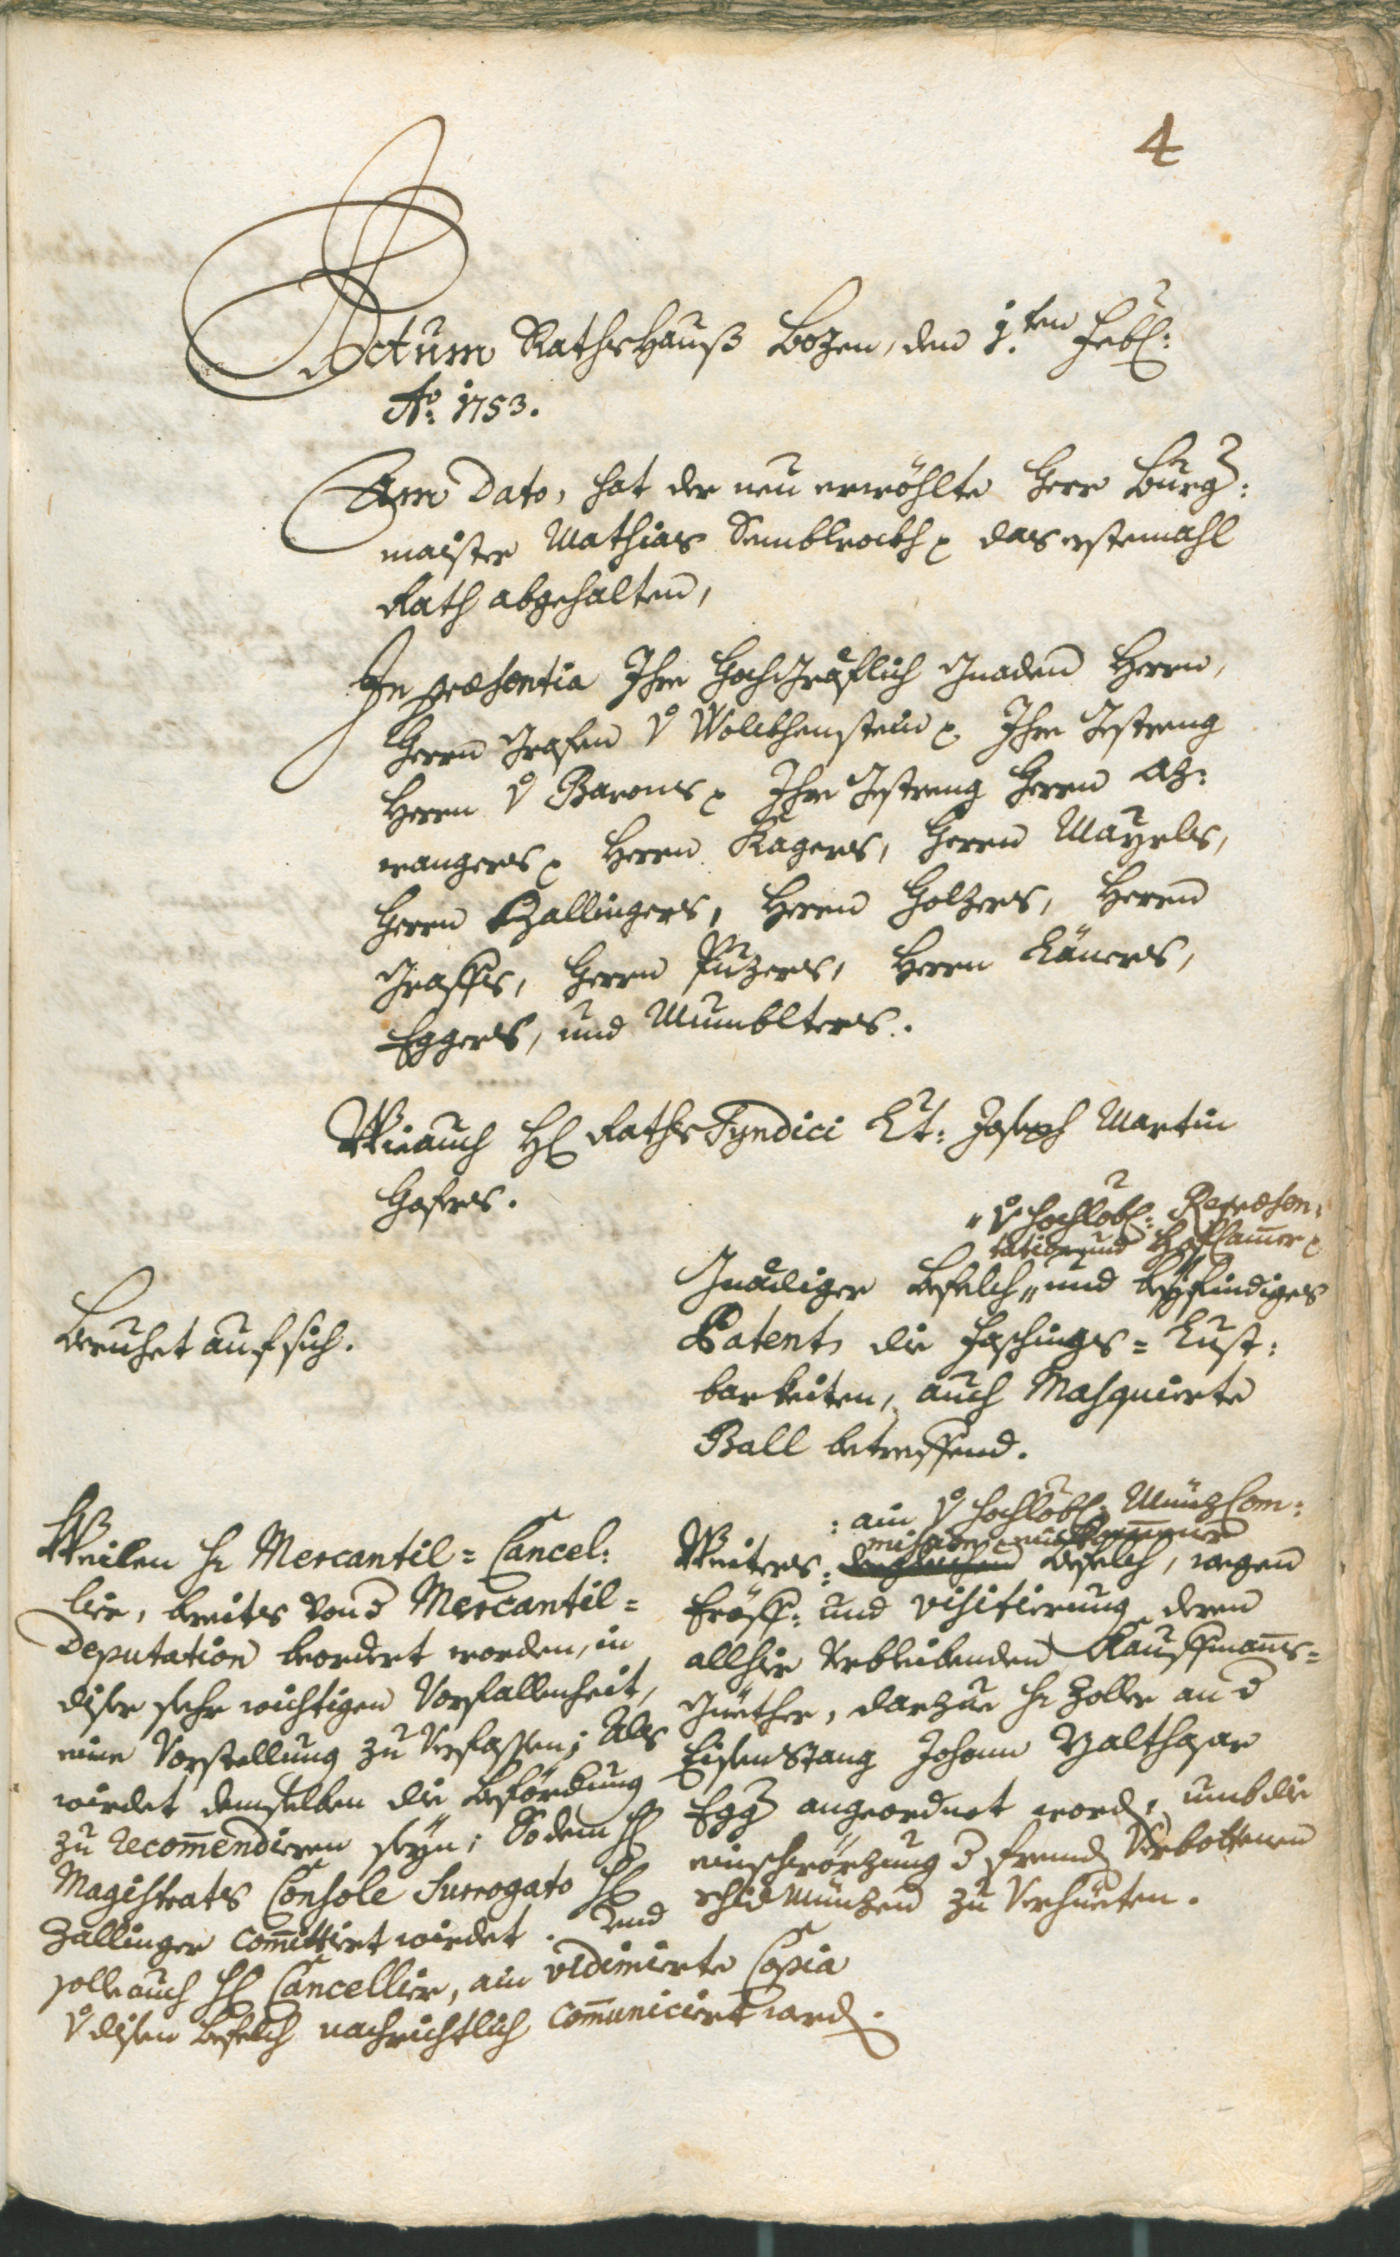 4
Actum Rathshauß Bozen, den 1.ten Febr:
Ao: 1753.
Am Dato, hat der neu erwöhlte Herr Burg:
maister Mathias Semblrockh p. das erstemahl
Rath abgehalten,
In præsentia Ihro Hochgräflich Gnaden Herrn,
Herrn Grafen v Wolckhenstein p. Ihro Gestreng
Herrn v Barons p Ihro Gestreng Herrn Az:
wangers p. Herrn Kagers, Herrn Mayrls,
Herrn Zallingers, Herrn Holzers, Herrn
Graffs, Herrn Puzers, Herrn Käuers,
Eggers, und Mumblters.
Wie auch H Raths Syndici Lt: Joseph Martin
Hofers.
Beruhet auf sich.
" v Hochlöbl: Repræsen:
tation und Hofcammer p
Gnädiger Befelch " und beyfindiges
Patent die Faschings= Lust:
barkeiten, auch Masquierte
Ball betreffend.
Weilen H Mercantil= Cancel:
lier, bereits von d Mercantil=
Deputation beordert worden, in
diser sehr wichtigen Vorfallenheit,
eine Vorstellung zu verfassen; Als
wirdet demselben die Beförderung
zu recommendieren seyn; So dem H
Magistrats Console Surrogato H
Zallinger committiert wirdet. Und
solle auch H Cancellier, ain vidimierte Copia
v disen Befelch nachrichtlich communiciert werd.
: ain v Hochlöbl: Münz Com:
mission
Weiters: Befelch, wegen
Eröff: und Visitierung deren
allhie verbleibenden Kauffmanns=
Güether, darzue H Zoller an d
Eisenstang Johann Balthasar
Egg angeordnet word, umb die
einschwörzung d fremd verbottenen
schid Münzen zu verhüeten.